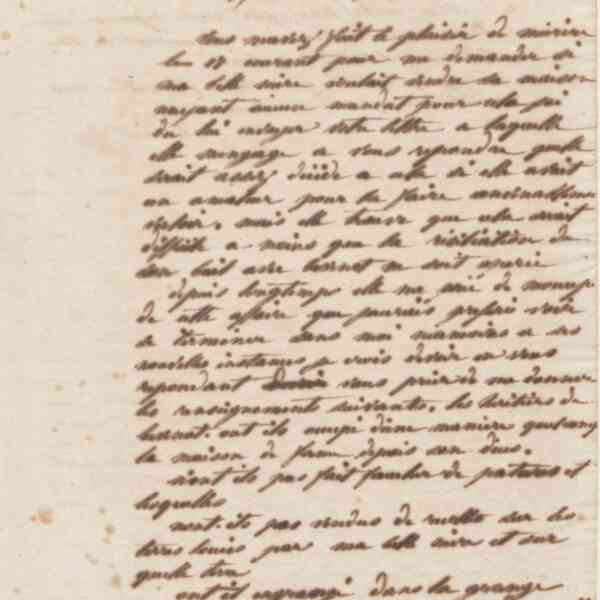 vous mavez fait le plaisir de mecrire
le 18 courant pour me demander si
ma belle mere voulait vendre sa maison
nayant aucun mandat pour cela jai
du lui envoyer votre lettre a laquelle
elle mengage a vous repondre quelle
serait assez décidé a cela si elle avait
un amateur pour la faire
mais elle trouve que cela serait
difficile a moins que la résiliation de
son bail avec hernot ne soit assurée
depuis longtemps elle me prié de moccuper
de cette affaire que jaurais preferé voir
se terminer sans moi neanmoins a ses
nouvelles instances je crois devoir en vous
repondant vous prier de me donner
les renseignements suivants. les héritiers de
hernot. ont ils occupé dune maniere quelconq
la maison de ferme depuis son deces.
nont ils pas fait faucher de patures et
lesquelles
nont ils pas vendus de recolte sur les
terres louées par ma belle mere et sur
quelle terre
ont il engrangé dans la grange